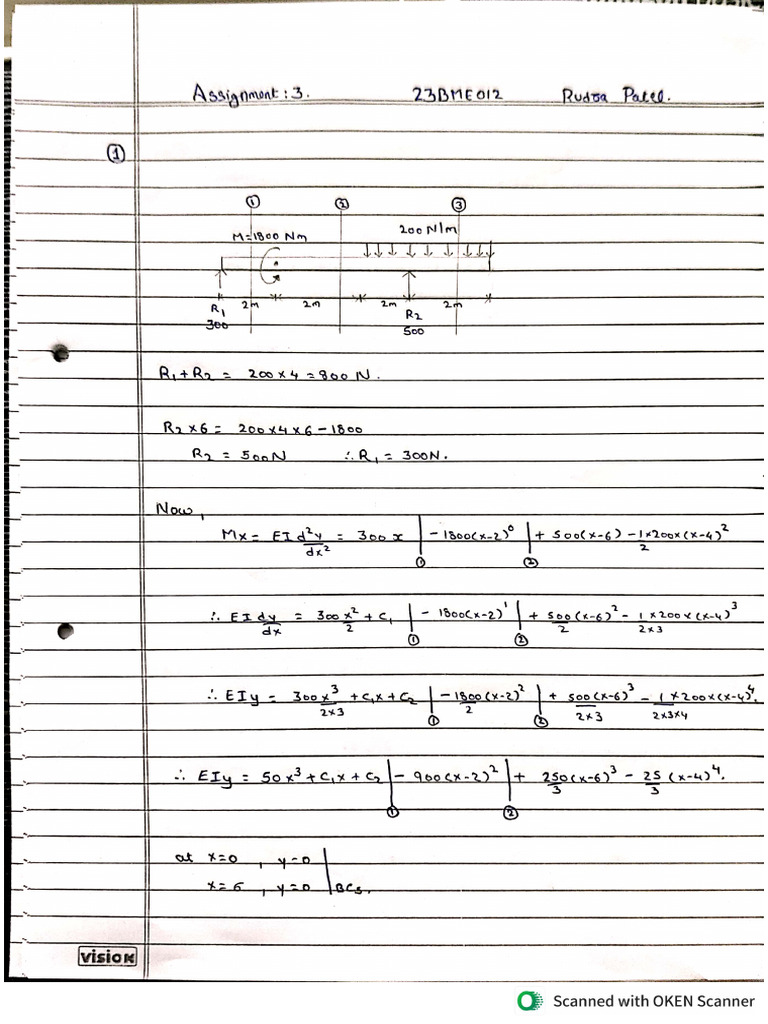 Assignment : 3. 23BME012 Rudra Patel.
①
① ② ③
M=1800 Nm 200 N/m
2m 2m 2m 2m
R₁ R₂
300 500
R₁+R₂ = 200×4 = 800 N.
R₂×6 = 200×4×6-1800
R₂ = 500N ∴ R₁ = 300N.
Now,
Mx = EI d²y/dx² = 300x |① -1800(x-2)⁰ |② + 500(x-6) - 1×200×(x-4)²/2
∴ EI dy/dx = 300x²/2 + C₁ |① - 1800(x-2)¹ |② + 500/2 (x-6)² - 1×200×(x-4)³/2×3
∴ EIy = 300x³/2×3 + C₁x + C₂ |① - 1800(x-2)²/2 |② + 500(x-6)³/2×3 - 1×200×(x-4)⁴/2×3×4.
∴ EIy = 50x³ + C₁x + C₂ |① - 900(x-2)² |② + 250/3 (x-6)³ - 25/3 (x-4)⁴.
at x=0 , y=0
x=6 , y=0 | BCs.
vision
Scanned with OKEN Scanner